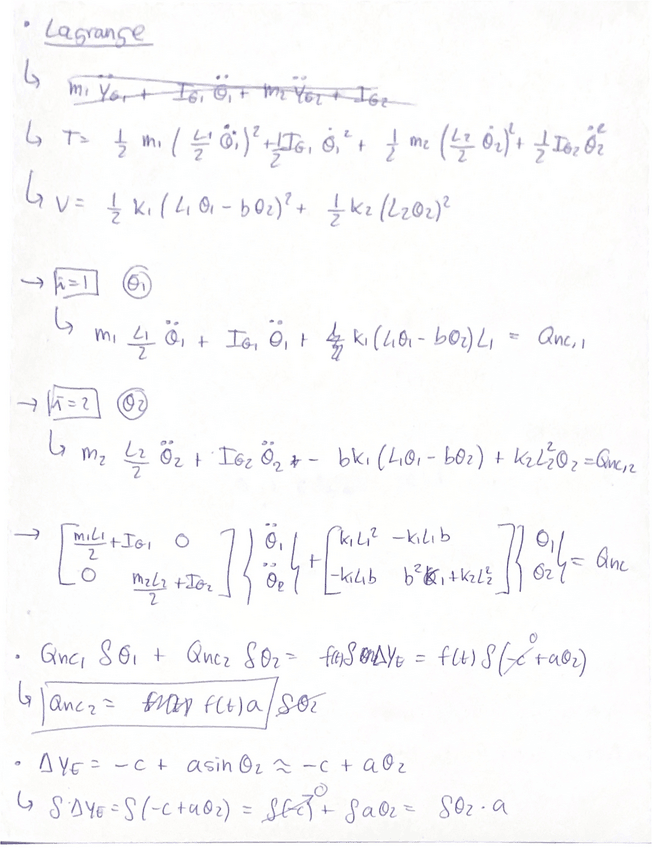 • Lagrange
↳ m₁ Ÿ_G₁ + I_G₁ θ̈₁ + m₂ Ÿ_G₂ + I_G₂
↳ T= 1/2 m₁ (L₁/2 θ̇₁)² + 1/2 I_G₁ θ̇₁² + 1/2 m₂ (L₂/2 θ̇₂)² + 1/2 I_G₂ θ̇₂²
↳ V= 1/2 k₁ (L₁θ₁ - bθ₂)² + 1/2 k₂ (L₂θ₂)²
→ i=1 θ₁
↳ m₁ L₁/2 θ̈₁ + I_G₁ θ̈₁ + k₁(L₁θ₁ - bθ₂)L₁ = Qnc,₁
→ i=2 θ₂
↳ m₂ L₂/2 θ̈₂ + I_G₂ θ̈₂ - bk₁(L₁θ₁ - bθ₂) + k₂L₂²θ₂ = Qnc,₂
→ [m₁L₁/2 + I_G₁ 0 ] {θ̈₁} + [k₁L₁² -k₁L₁b ] {θ₁} = Qnc
[0 m₂L₂/2 + I_G₂] {θ̈₂} [-k₁L₁b b²k₁+k₂L₂²] {θ₂}
• Qnc₁ δθ₁ + Qnc₂ δθ₂ = f(t)δΔY_E = f(t) δ(-c⁰ + aθ₂)
↳ Qnc₂ = f(t)a δθ₂
• ΔY_E = -c + a sin θ₂ ≈ -c + aθ₂
↳ δΔY_E = δ(-c+aθ₂) = δ(-c)⁰ + δaθ₂ = δθ₂ · a